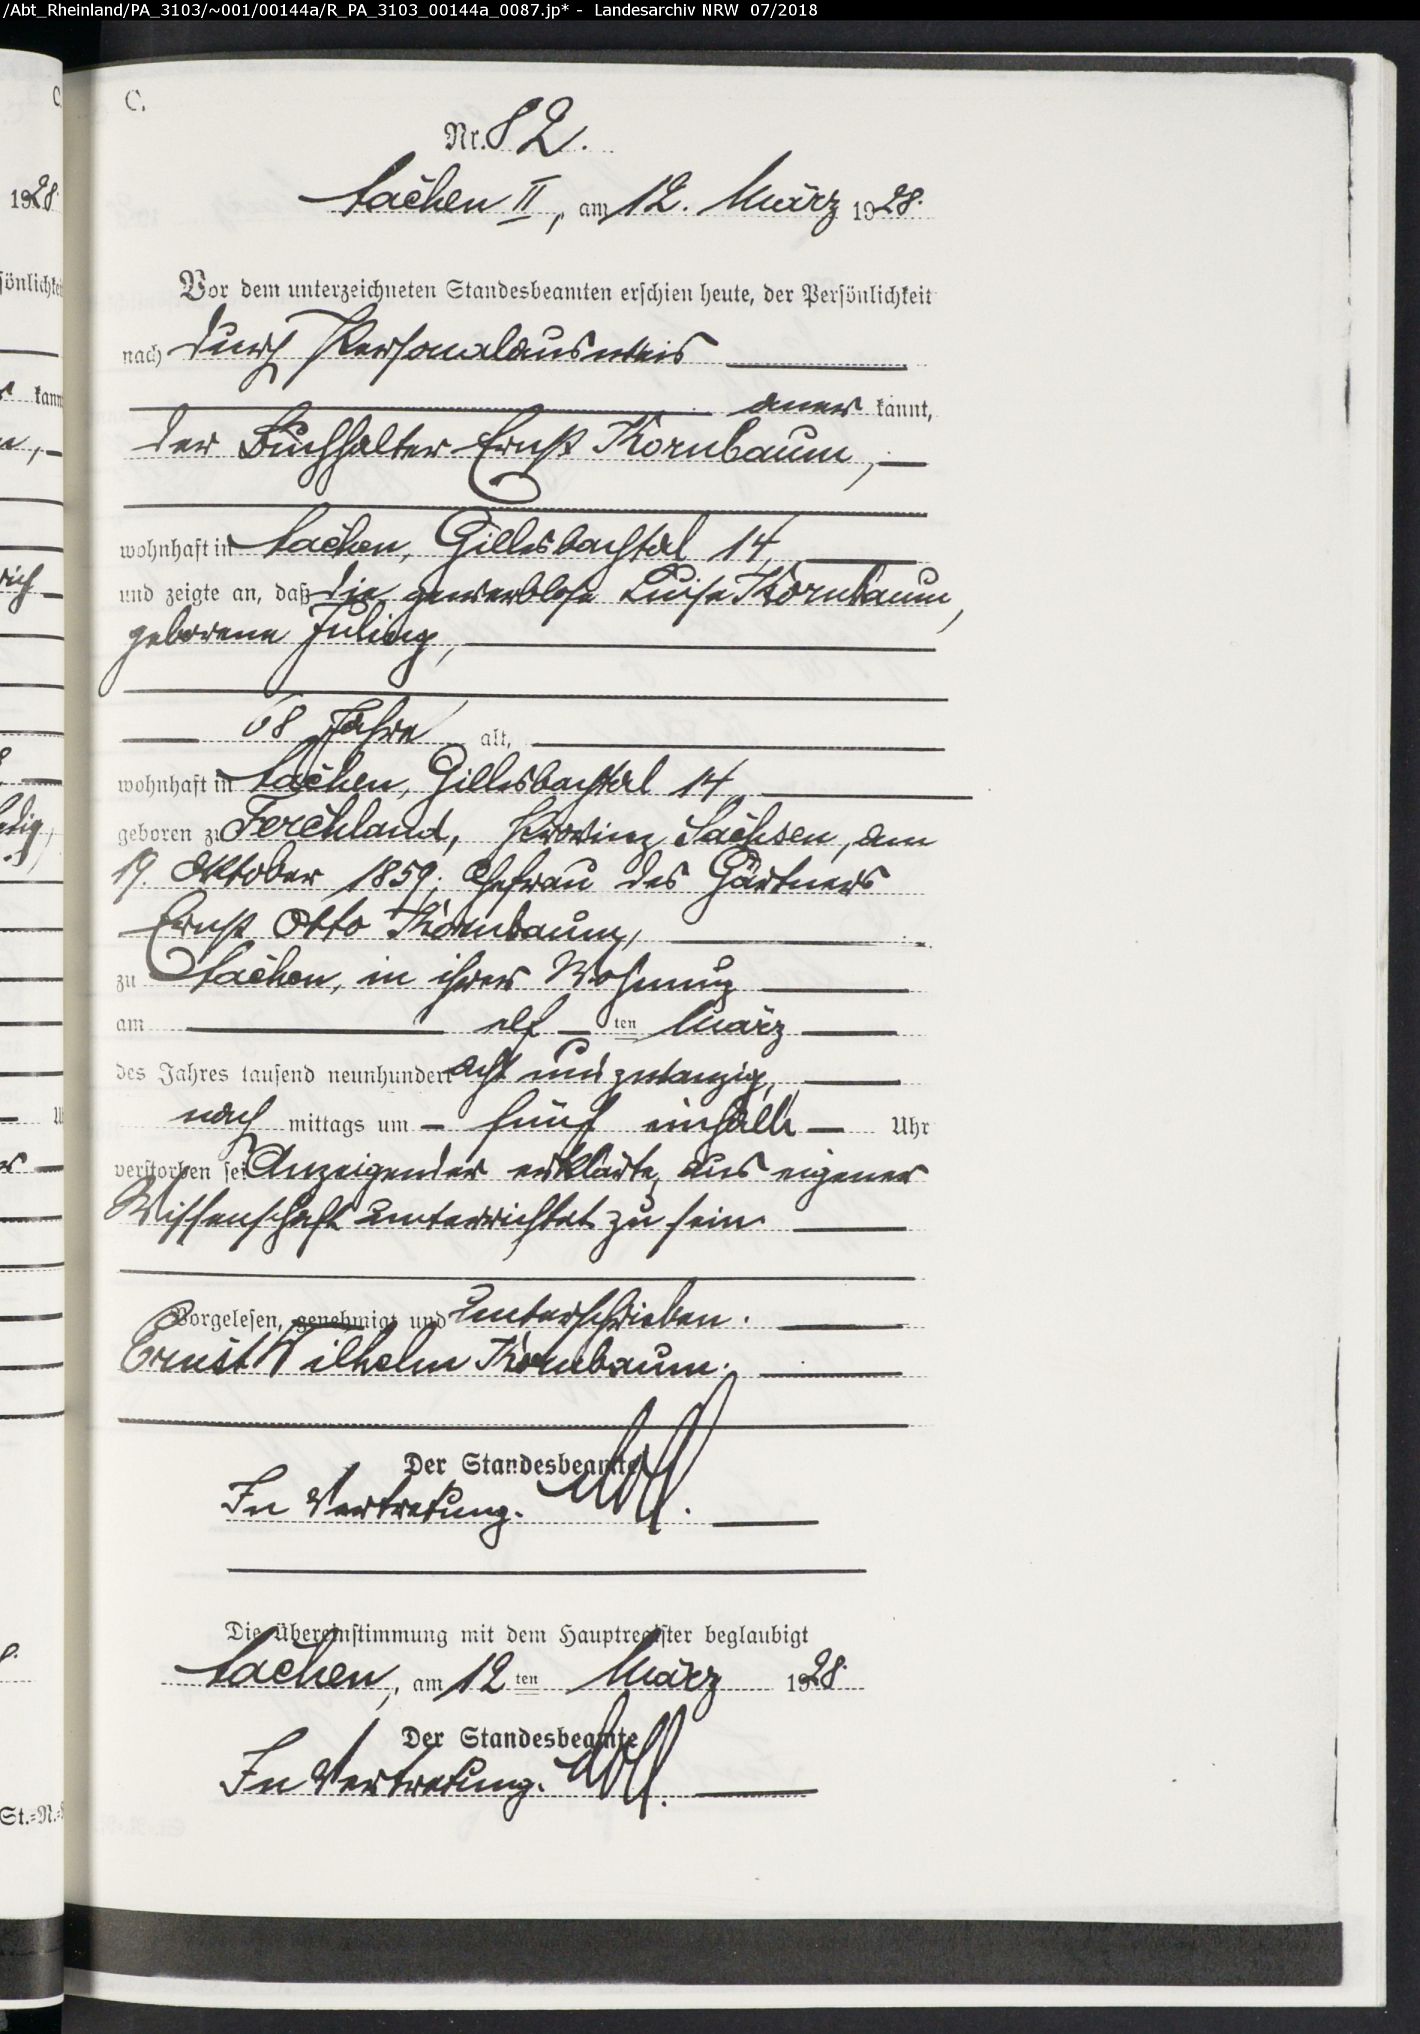 /Abt_Rheinland/PA_3103/~001/00144a/R_PA_3103_00144a_0087.jp* - Landesarchiv NRW 07/2018
C.
Nr. 82.
Aachen II, am 12. März 1928.
Vor dem unterzeichneten Standesbeamten erschien heute, der Persönlichkeit
nach durch Personalausweis
aner kannt,
der Buchhalter Ernst Kornbaum,
wohnhaft in Aachen, Gillesbachtal 14,
und zeigte an, daß die gewerblose Luise Kornbaum,
geborene Juling,
68 Jahre alt,
wohnhaft in Aachen, Gillesbachtal 14
geboren zu Ferchland, Provinz Sachsen, am
19. Oktober 1859, Ehefrau des Gärtners
Ernst Otto Kornbaum,
zu Aachen, in ihrer Wohnung
am elf ten März
des Jahres tausend neunhundert acht und zwanzig,
nach mittags um fünf einhalb Uhr
verstorben sei. Anzeigender erklärte, aus eigener
Wissenschaft unterrichtet zu sein.
Vorgelesen, genehmigt und unterschrieben.
Ernst Wilhelm Kornbaum.
Der Standesbeamte
In Vertretung.
Die Übereinstimmung mit dem Hauptregister beglaubigt
Aachen, am 12 ten März 1928.
Der Standesbeamte
In Vertretung.